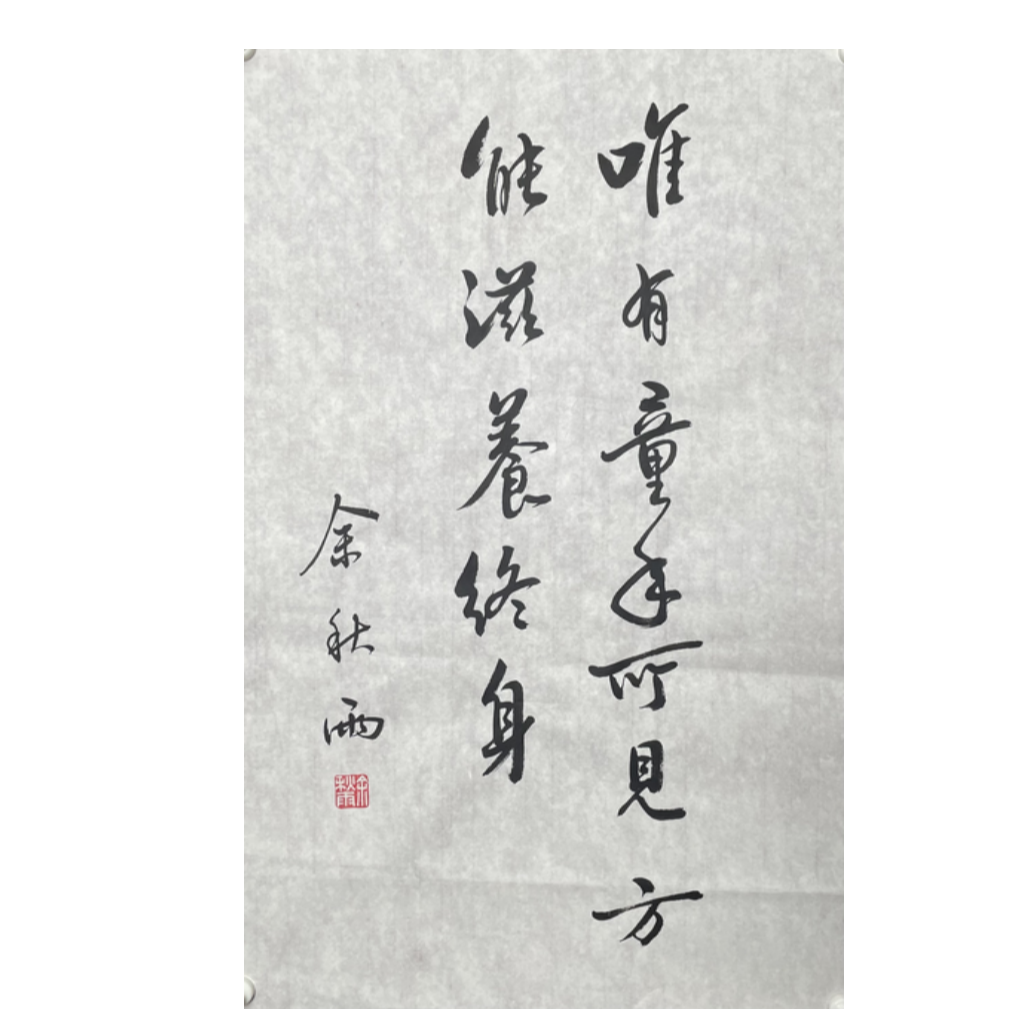 唯有童年所見方
能滋養終身
余秋雨
余秋雨